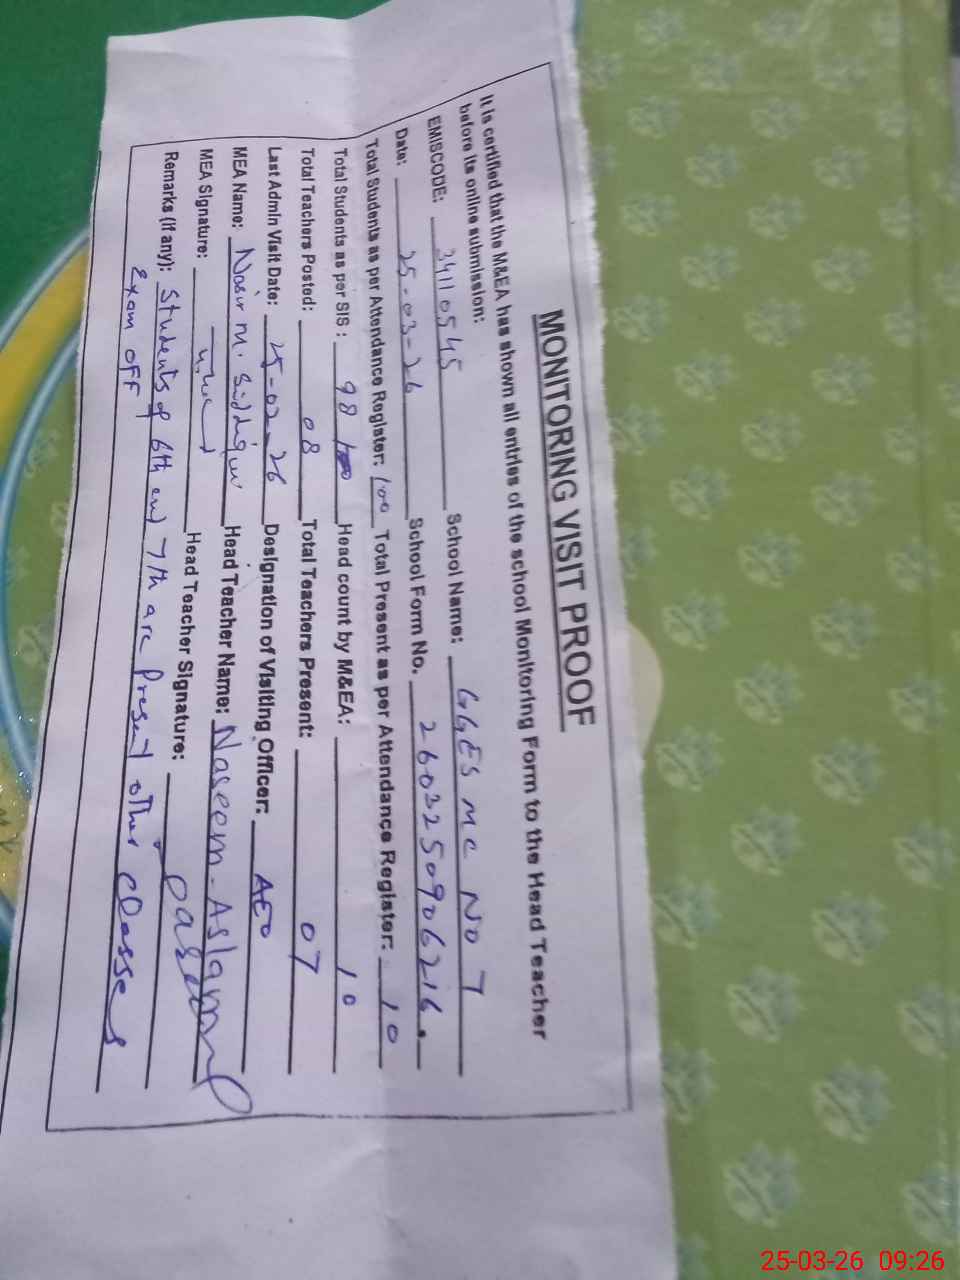 MONITORING VISIT PROOF
It is certified that the M&EA has shown all entries of the school Monitoring Form to the Head Teacher
before its online submission:
EMISCODE: 34110545 School Name: GGES MC NO 7
Date: 25-03-26 School Form No. 2603250906216.
Total Students as per Attendance Register: 100 Total Present as per Attendance Register: 10
Total Students as per SIS: 98 Head count by M&EA: 10
Total Teachers Posted: 08 Total Teachers Present: 07
Last Admin Visit Date: 25-02-26 Designation of Visiting Officer: AEO
MEA Name: Nasir M. Siddiqui Head Teacher Name: Naseem Aslam
MEA Signature: Head Teacher Signature:
Remarks (if any): Students of 6th and 7th are Present other classes
Exam OFF
25-03-26 09:26